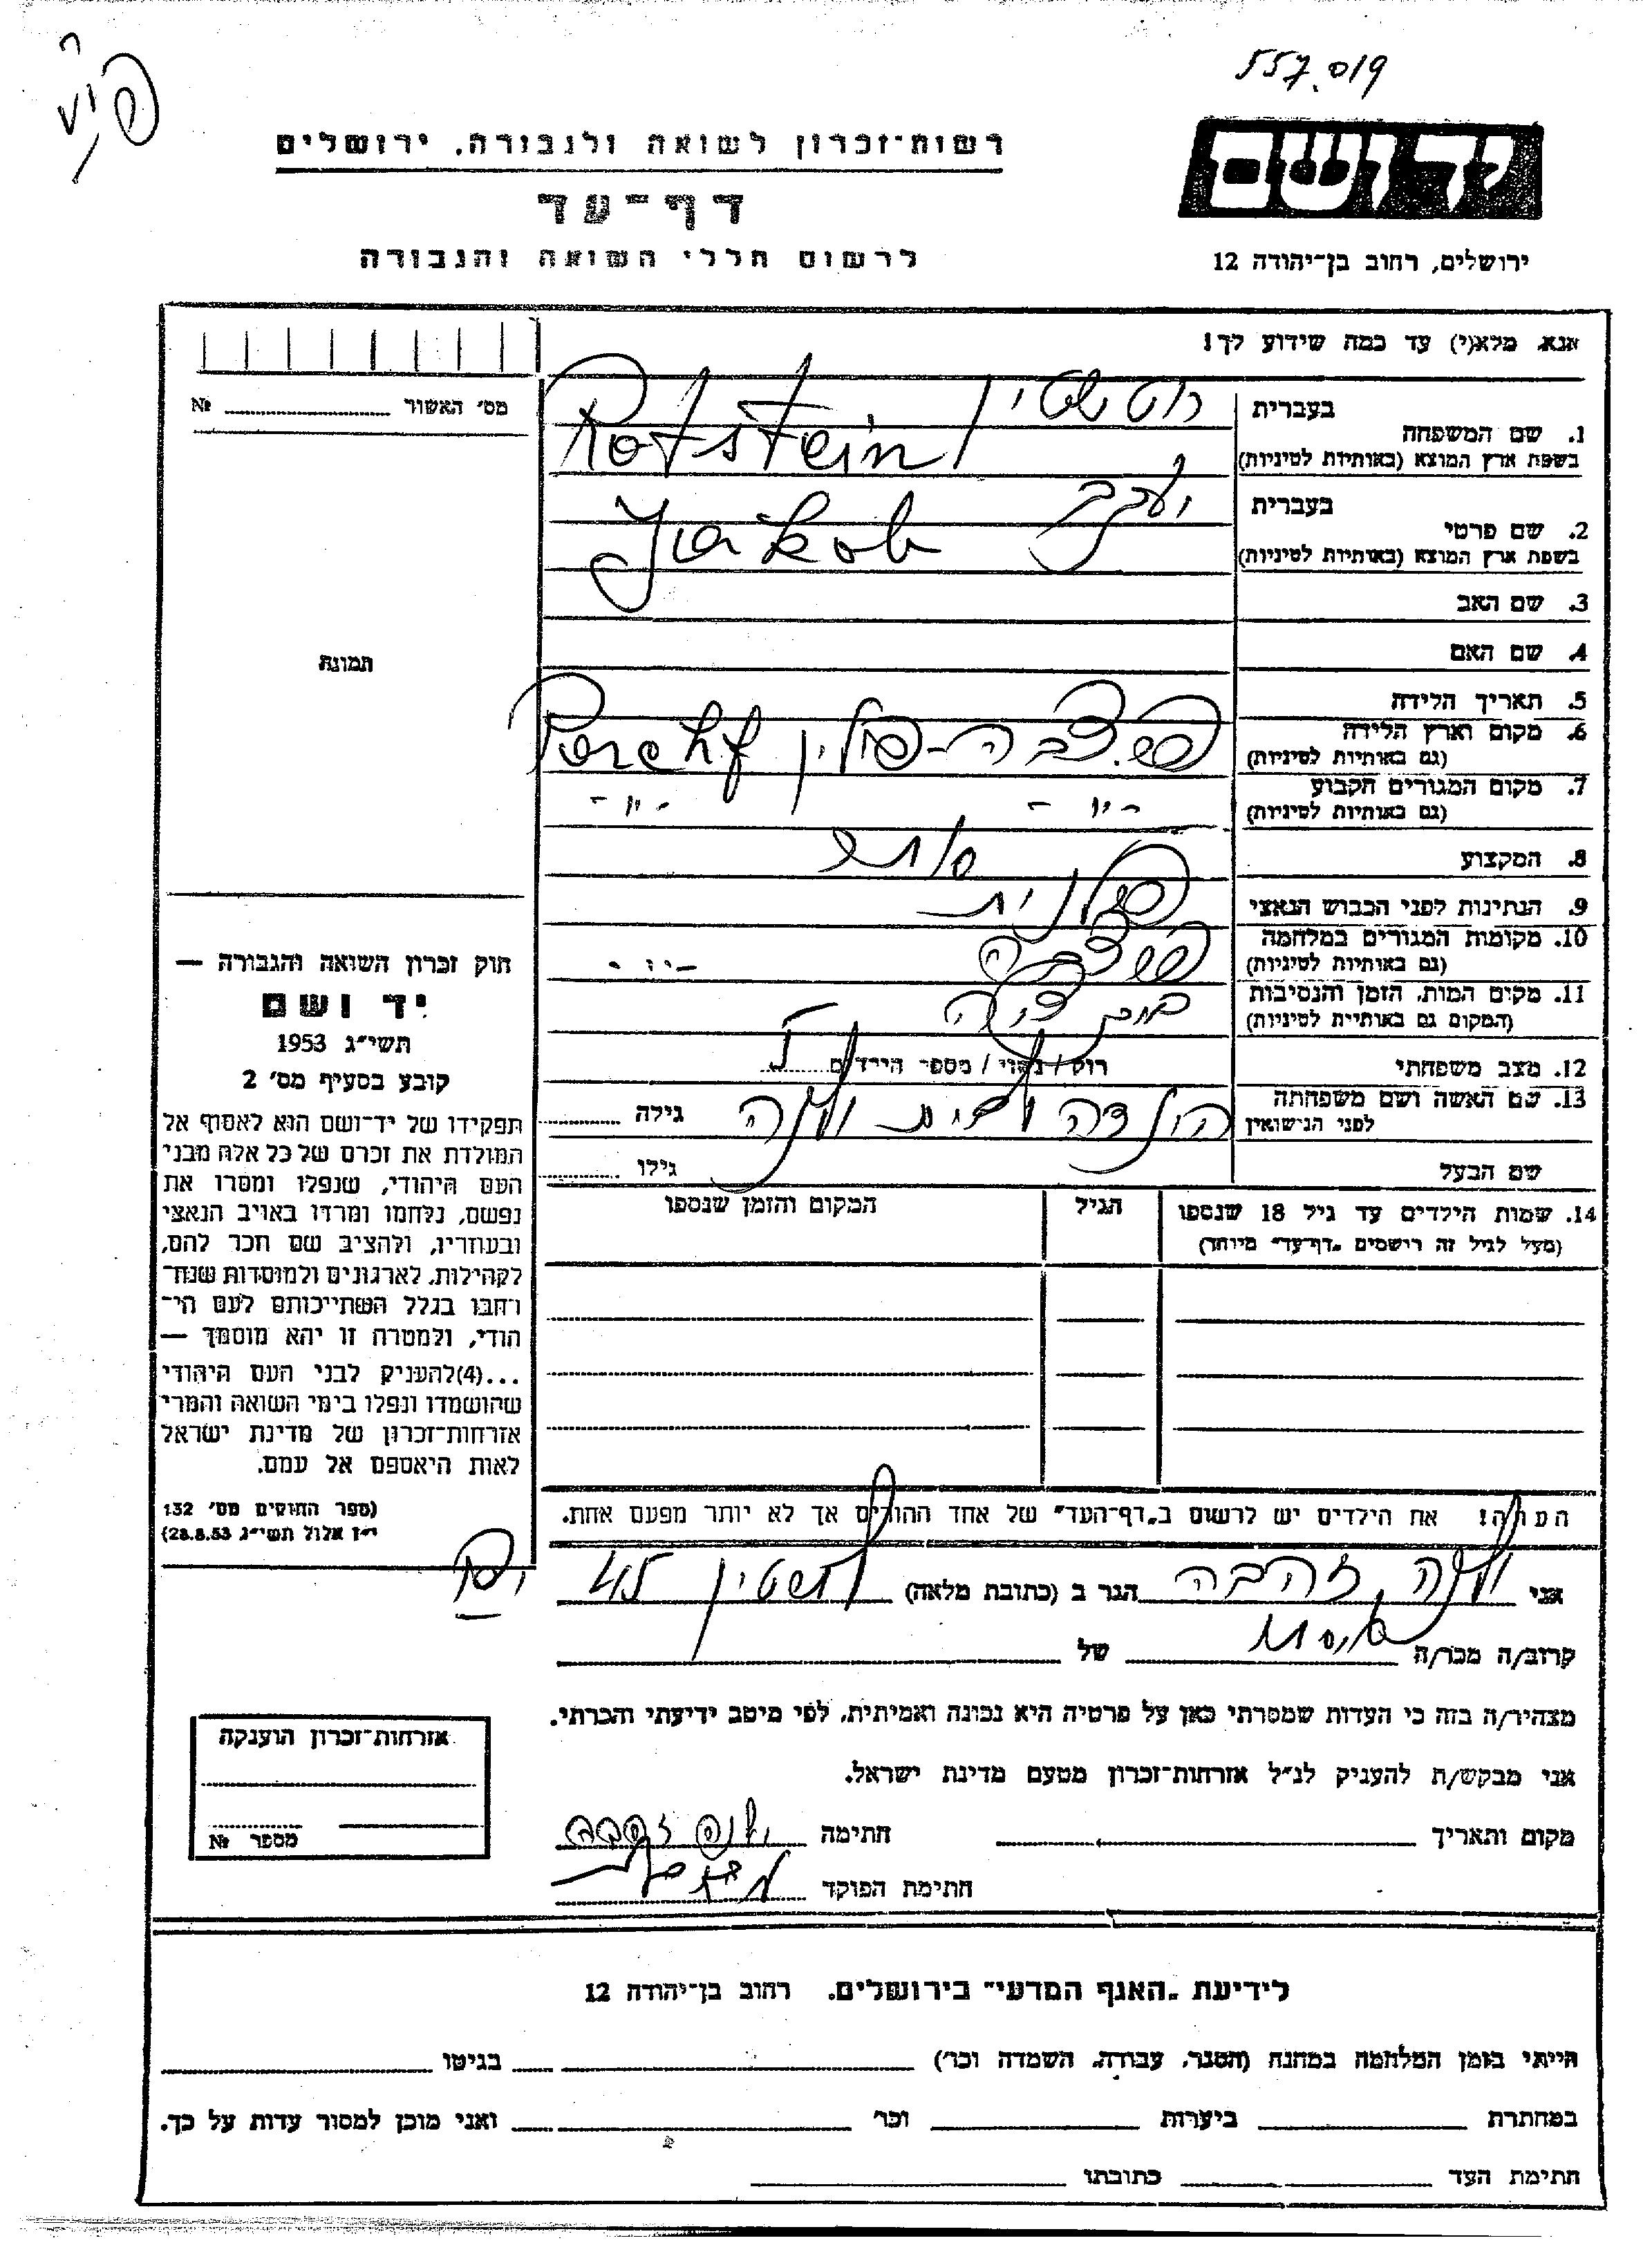 557.019
יד ושם
ירושלים, רחוב בן־יהודה 12
רשות־זכרון לשואה ולגבורה, ירושלים
דף־עד
לרשום חללי השואה והגבורה
אנא מלא(י) עד כמה שידוע לך!
1. שם המשפחה
בעברית
רוטשטיין
בשפת ארץ המוצא (באותיות לטיניות)
Rotstein
2. שם פרטי
בעברית
יעקב
בשפת ארץ המוצא (באותיות לטיניות)
Jakob
3. שם האב
4. שם האם
5. תאריך הלידה
6. מקום וארץ הלידה
(גם באותיות לטיניות)
7. מקום המגורים הקבוע
(גם באותיות לטיניות)
-"- -"-
8. המקצוע
סוחר
9. הנתינות לפני הכבוש הנאצי
פולנית
10. מקומות המגורים במלחמה
(גם באותיות לטיניות)
-"-
11. מקום המות, הזמן והנסיבות
(המקום גם באותיות לטיניות)
12. מצב משפחתי
רוק / נשוי / מספר הילדים
13. שם האשה ושם משפחתה
לפני הנישואין
הינדה לבית
גילה
שם הבעל
גילו
14. שמות הילדים עד גיל 18 שנספו
(מעל לגיל זה רושמים „דף־עד" מיוחד)
הגיל
המקום והזמן שנספו
הערה! את הילדים יש לרשום ב„דף־העד" של אחד ההורים אך לא יותר מפעם אחת.
אני
זהבה
הגר ב (כתובת מלאה)
קרוב/ה מכר/ה
של
מצהיר/ה בזה כי העדות שמסרתי כאן על פרטיה היא נכונה ואמיתית, לפי מיטב ידיעתי והכרתי.
אני מבקש/ת להעניק לנ"ל אזרחות־זכרון מטעם מדינת ישראל.
מקום ותאריך
חתימה
זהבה
חתימת הפוקד
מס' האשור № 
תמונה
חוק זכרון השואה והגבורה —
יד ושם
תשי"ג 1953
קובע בסעיף מס' 2
תפקידו של יד־ושם הוא לאסוף אל
המולדת את זכרם של כל אלה מבני
העם היהודי, שנפלו ומסרו את
נפשם, נלחמו ומרדו באויב הנאצי
ובעוזריו, ולהציב שם וזכר להם,
לקהילות, לארגונים ולמוסדות שנח־
רבו בגלל השתייכותם לעם הי־
הודי, ולמטרה זו יהא מוסמך —
...(4)להעניק לבני העם היהודי
שהושמדו ונפלו בימי השואה והמרי
אזרחות־זכרון של מדינת ישראל
לאות היאספם אל עמם.
(ספר החוקים מס' 132
י"ז אלול תשי"ג 28.8.53)
אזרחות־זכרון הוענקה
מספר №
לידיעת „האגף המדעי" בירושלים, רחוב בן־יהודה 12
הייתי בזמן המלחמה במחנה (הסגר, עבודה, השמדה וכו') בגיטו
במחתרת ביערות וכו' ואני מוכן למסור עדות על כך.
חתימת העד כתובתו